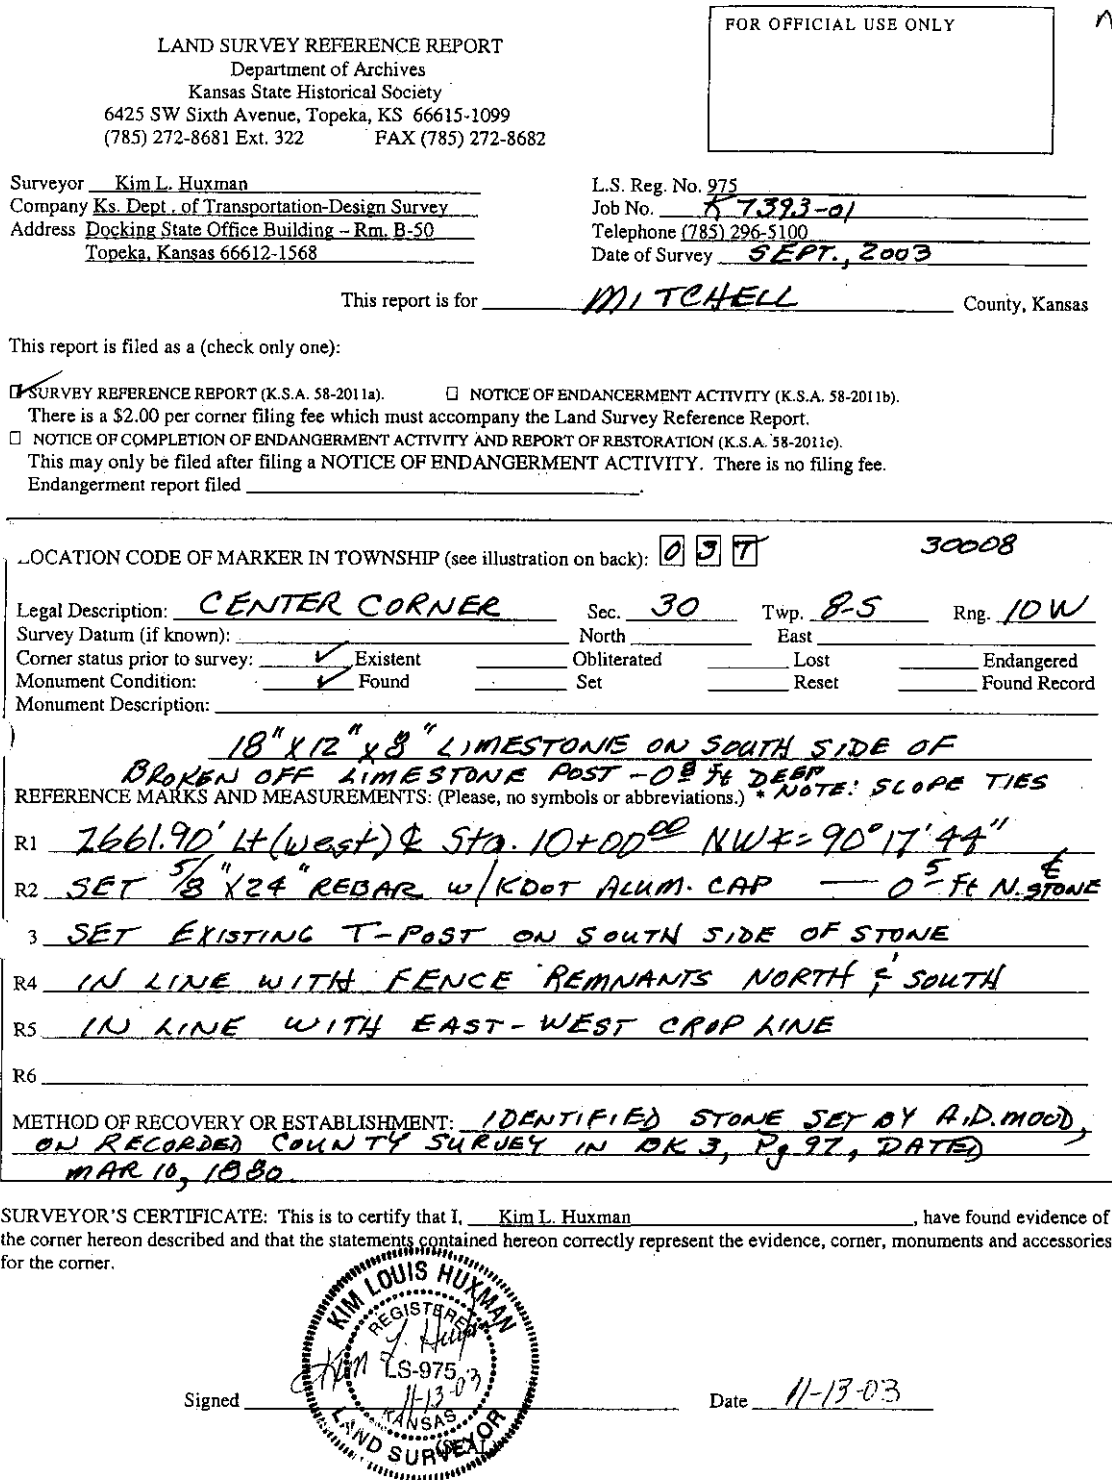 FOR OFFICIAL USE ONLY
LAND SURVEY REFERENCE REPORT
Department of Archives
Kansas State Historical Society
6425 SW Sixth Avenue, Topeka, KS 66615-1099
(785) 272-8681 Ext. 322 FAX (785) 272-8682
Surveyor Kim L. Huxman
Company Ks. Dept. of Transportation-Design Survey
Address Docking State Office Building – Rm. B-50
Topeka, Kansas 66612-1568
L.S. Reg. No. 975
Job No. K 7393-01
Telephone (785) 296-5100
Date of Survey SEPT., 2003
This report is for MITCHELL County, Kansas
This report is filed as a (check only one):
☑ SURVEY REFERENCE REPORT (K.S.A. 58-2011a). ☐ NOTICE OF ENDANGERMENT ACTIVITY (K.S.A. 58-2011b).
There is a $2.00 per corner filing fee which must accompany the Land Survey Reference Report.
☐ NOTICE OF COMPLETION OF ENDANGERMENT ACTIVITY AND REPORT OF RESTORATION (K.S.A. 58-2011c).
This may only be filed after filing a NOTICE OF ENDANGERMENT ACTIVITY. There is no filing fee.
Endangerment report filed
LOCATION CODE OF MARKER IN TOWNSHIP (see illustration on back): 0 3 T 30008
Legal Description: CENTER CORNER Sec. 30 Twp. 8-S Rng. 10W
Survey Datum (if known): North East
Corner status prior to survey: ✓ Existent Obliterated Lost Endangered
Monument Condition: ✓ Found Set Reset Found Record
Monument Description:
18" X 12" X 8" LIMESTONE ON SOUTH SIDE OF
BROKEN OFF LIMESTONE POST - 0⁸ Ft DEEP
* NOTE: SLOPE TIES
REFERENCE MARKS AND MEASUREMENTS: (Please, no symbols or abbreviations.)
R1 2661.90' Lt (west) ℄ Sta. 10+00⁰⁰ NW∡=90°17'44"
R2 SET 5/8" X 24" REBAR w/KDOT ALUM. CAP — 0⁵ Ft N. ℄ STONE
3 SET EXISTING T-POST ON SOUTH SIDE OF STONE
R4 IN LINE WITH FENCE REMNANTS NORTH & SOUTH
R5 IN LINE WITH EAST-WEST CROP LINE
R6
METHOD OF RECOVERY OR ESTABLISHMENT: IDENTIFIED STONE SET BY A.D. MOOD,
ON RECORDED COUNTY SURVEY IN BK 3, Pg 97, DATED
MAR 10, 1880.
SURVEYOR'S CERTIFICATE: This is to certify that I, Kim L. Huxman, have found evidence of
the corner hereon described and that the statements contained hereon correctly represent the evidence, corner, monuments and accessories
for the corner.
KIM LOUIS HUXMAN
REGISTERED
Kim L. Huxman
LS-975
11-13-03
KANSAS
LAND SURVEYOR
(SEAL)
Signed Date 11-13-03